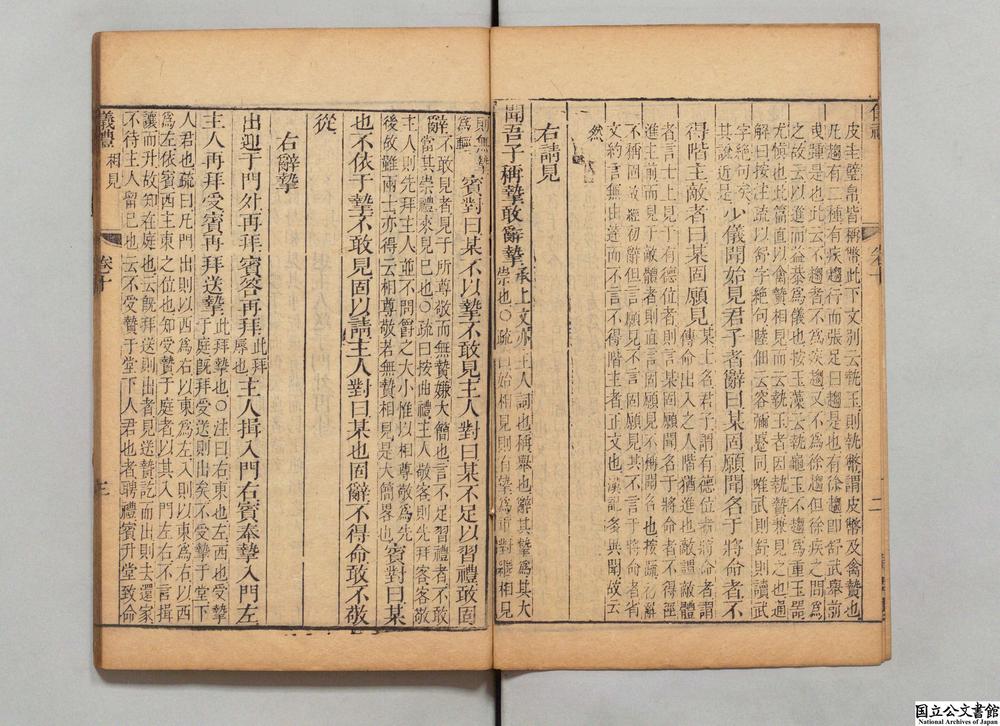 皮圭璧帛皆稱幣此下文别云執玉則執幣謂皮幣及禽贄也
凡趨有二種有疾趨行而張足曰趨是也有徐趨即舒武舉前
曳踵是也此云不趨者不為疾趨又不為徐趨但徐疾之間為
之故云以進而益恭為儀也按玉藻云執龜玉不趨為重玉器
尤慎也此篇直云執玉者因執贄相見之也通
解曰按注疏以舒字絶句陸佃云容彌蹙同唯武則舒則讀武
字絶句矣
其說近是 少儀聞始見君子者辭曰某固願聞名于將命者不
得階主敵者曰某固願見
者言士上見于有德位者則言某固願聞名于將命者不得徑
進主前而見于敵體者則直言固願見不稱聞名也按疏
文約言無由達而不言不得階主者正文也漢記各異聞故云
然
右請見
聞吾子稱摯敢辭摯 承上文亦主人詞也稱舉也辭其摯為其大
崇也○疏曰始相見則有摯為重對
則無摯
為輕 賓對曰某不以摯不敢見主人對曰某不足以習禮敢固
辭 不敢見者見于所尊敬而無贄嫌大簡也言不足習禮者不敢
當其崇禮來見已也○疏曰按曲禮主人敬客則先拜客客敬
主人則先拜主人並不問爵之大小惟以相尊敬為先
後故雖兩士亦得云相尊敬者無贄相見是大簡畧也 賓對曰某
也不依于摯不敢見固以請主人對曰某也固辭不得命敢不敬
從
右辭摯
出迎于門外再拜賓答再拜 此拜
辱也 主人揖入門右賓奉摯入門左
主人再拜受賓再拜送摯 此拜摯也○注曰右東也左西也受摯
于庭既拜受送則出矣不受摯于堂下
人君也疏曰凡門出則以西為右以東為左入則以東為右以西
為左依賓西主東之位也知受贄于庭者以其入門左右不言揖
讓而升故知在庭也云既拜送則出者見送贄訖而出則去還家
不待主人留已也云不受贄于堂下人君也者聘禮賓升堂致命
儀禮 相見 卷十 三
国立公文書館
National Archives of Japan